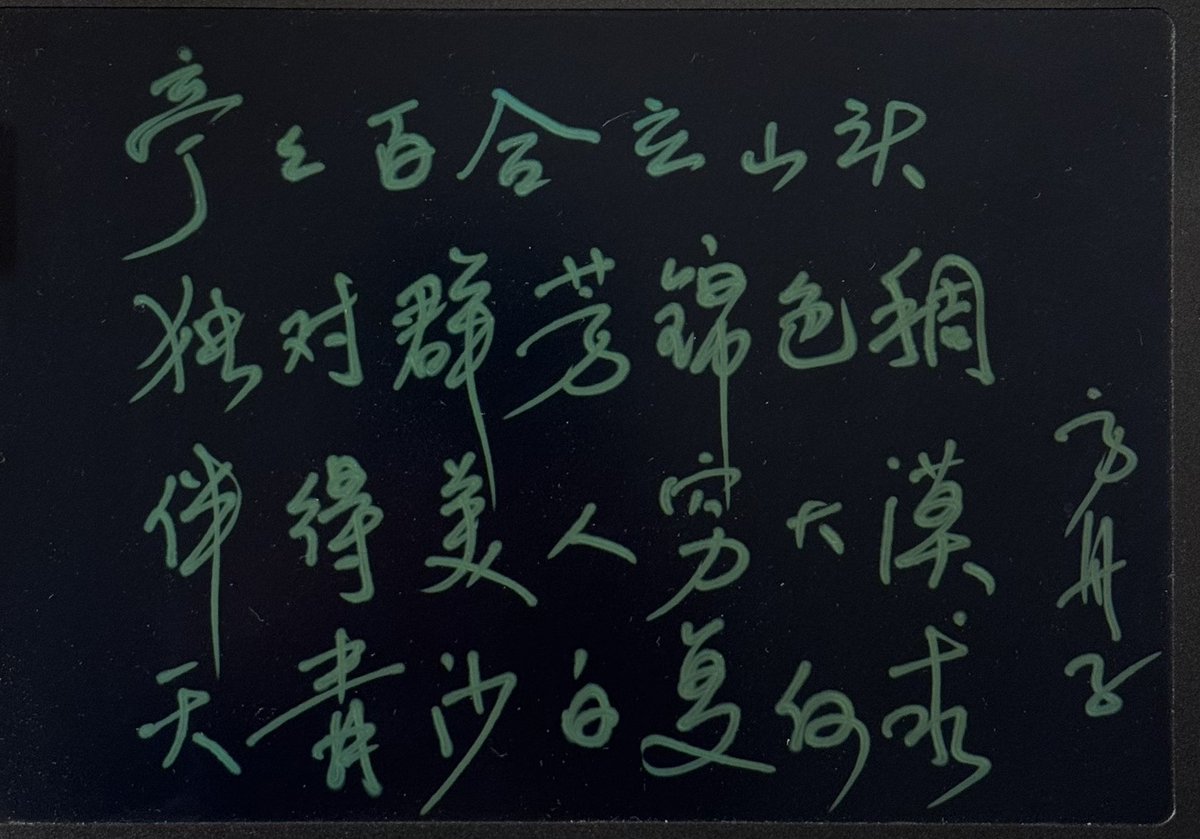 亭々百合立山头
独对群芳锦色稠
伴得美人穷大漠
天青沙白复何求
方舟子